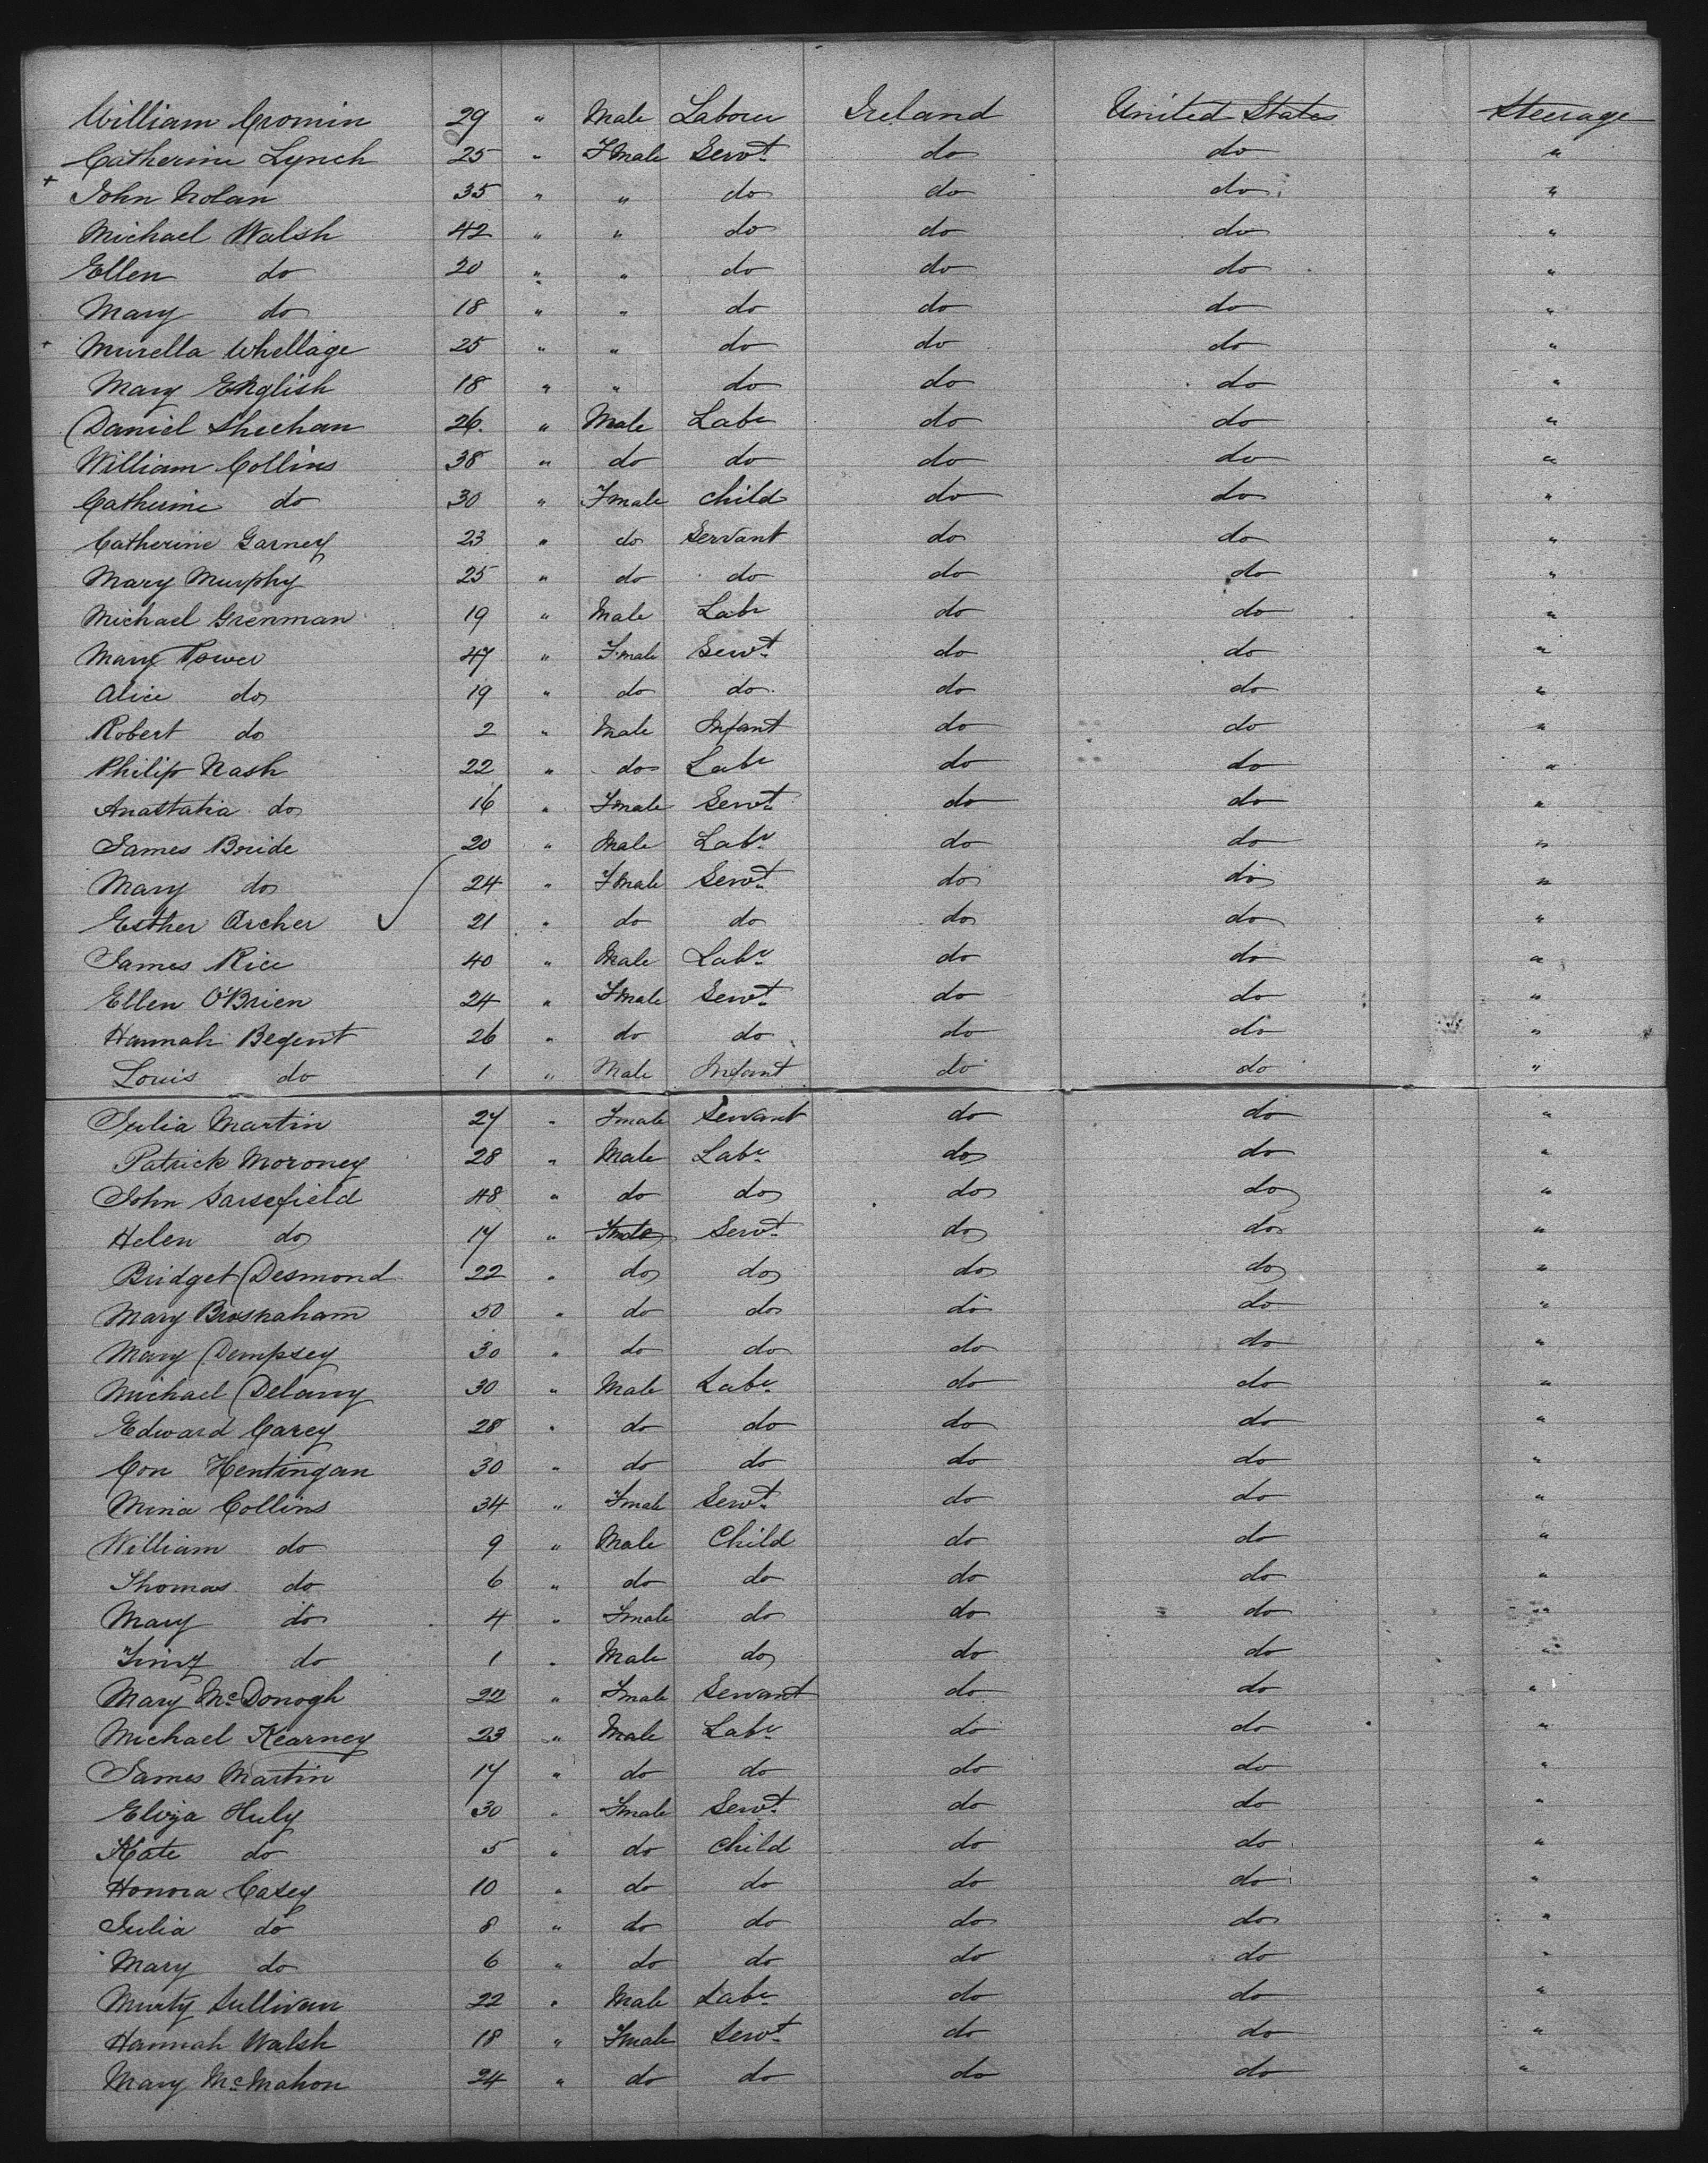 William Cronin 29 " Male Labourer Ireland United States Steerage
Catherine Lynch 25 " Fmale Servt do do "
+ John Nolan 35 " " do do do "
Michael Walsh 42 " " do do do "
Ellen do 20 " " do do do "
Mary do 18 " " do do do "
+ Murella Whellage 25 " " do do do "
Mary English 18 " " do do do "
Daniel Sheehan 26. " Male Labr do do "
William Collins 38 " do do do do "
Catherine do 30 " Fmale child do do "
Catherine Garney 23 " do Servant do do "
Mary Murphy 25 " do do do do "
Michael Grenman 19 " Male Labr do do "
Mary Power 47 " Fmale Servt do do "
Alice do 19 " do do do do "
Robert do 2 " Male Infant do do "
Philip Nash 22 " do Labr do do "
Anastatia do 16 " Fmale Servt do do "
James Bride 20 " Male Labr do do "
Mary do 24 " Fmale Servt do do "
Esther Archer ✓ 21 " do do do do "
James Rice 40 " Male Labr do do "
Ellen O'Brien 24 " Fmale Servt do do "
Hannah Begent 26 " do do do do "
Louis do 1 " Male Infant do do "
Julia Martin 27 " Fmale Servant do do "
Patrick Moroney 28 " Male Labr do do "
John Sarsefield 48 " do do do do "
Helen do 17 " Fmale Servt do do "
Bridget Desmond 22 " do do do do "
Mary Brosnaham 50 " do do do do "
Mary Dempsey 30 " do do do do "
Michael Delany 30 " Male Labr do do "
Edward Carey 28 " do do do do "
Con Hentingan 30 " do do do do "
Mina Collins 34 " Fmale Servt do do "
William do 9 " Male Child do do "
Thomas do 6 " do do do do "
Mary do 4 " Fmale do do do "
do 1 " Male do do do "
Mary McDonogh 22 " Fmale Servant do do "
Michael Kearney 23 " Male Labr do do "
James Martin 17 " do do do do "
Eliza Huly 30 " Fmale Servt do do "
Kate do 5 " do child do do "
Honora Casey 10 " do do do do "
Julia do 8 " do do do do "
Mary do 6 " do do do do "
Murty Sullivan 22 " Male Labr do do "
Hannah Walsh 18 " Fmale Servt do do "
Mary McMahon 24 " do do do do "